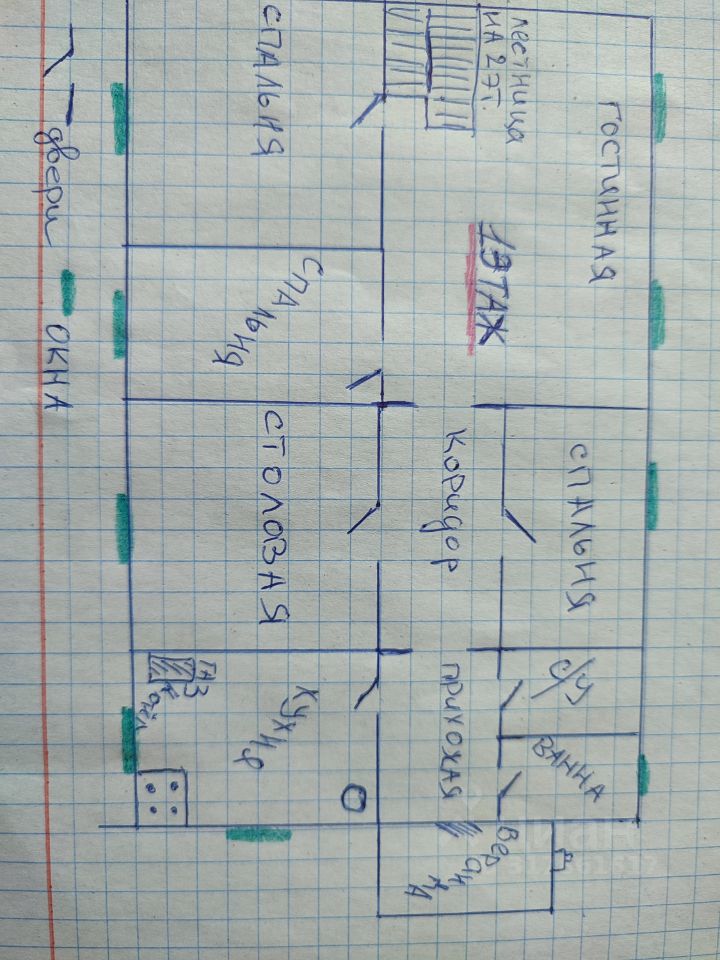 ЛЕСТНИЦА
НА 2 ЭТ.
ГОСТИННАЯ
СПАЛЬНЯ
1 ЭТАЖ
СПАЛЬНЯ
двери
ОКНА
СПАЛЬНЯ
КОРИДОР
СТОЛОВАЯ
С/У
ВАННА
ПРИХОЖАЯ
КУХНЯ
ГАЗ